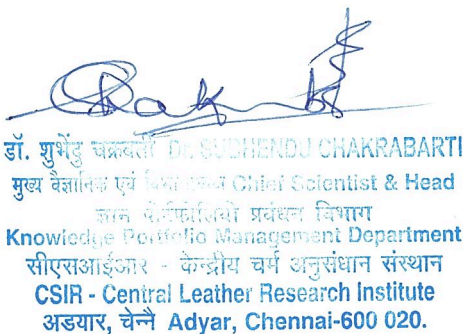 डॉ. शुभेंदु चक्रवर्ती Dr. SUBHENDU CHAKRABARTI
मुख्य वैज्ञानिक एवं Chief Scientist & Head
ज्ञान पोर्टफोलियो प्रबंधन विभाग
Knowledge Portfolio Management Department
सीएसआईआर - केन्द्रीय चर्म अनुसंधान संस्थान
CSIR - Central Leather Research Institute
अडयार, चेन्नै Adyar, Chennai-600 020.